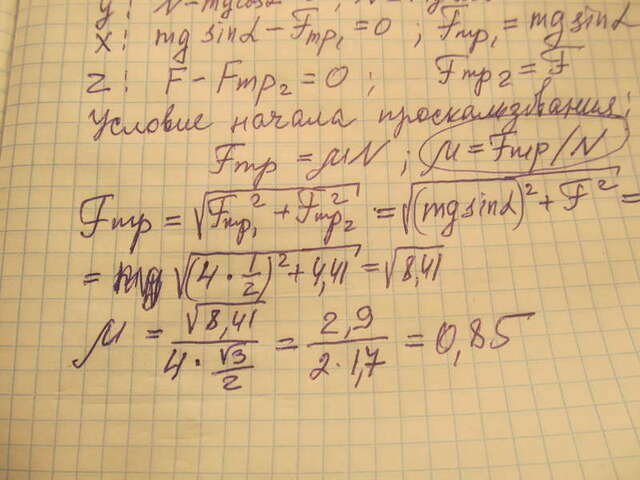 y: N - mg cosα
x: mg sinα - Fтр₁ = 0 ; Fтр₁ = mg sinα
z: F - Fтр₂ = 0 ; Fтр₂ = F
Условие начала проскальзывания:
Fтр = μN ; μ = Fтр / N
Fтр = √(Fтр₁² + Fтр₂²) = √((mg sinα)² + F²) =
= √((4 · 1/2)² + 4,41) = √8,41
μ = √8,41 / (4 · √3/2) = 2,9 / (2 · 1,7) = 0,85